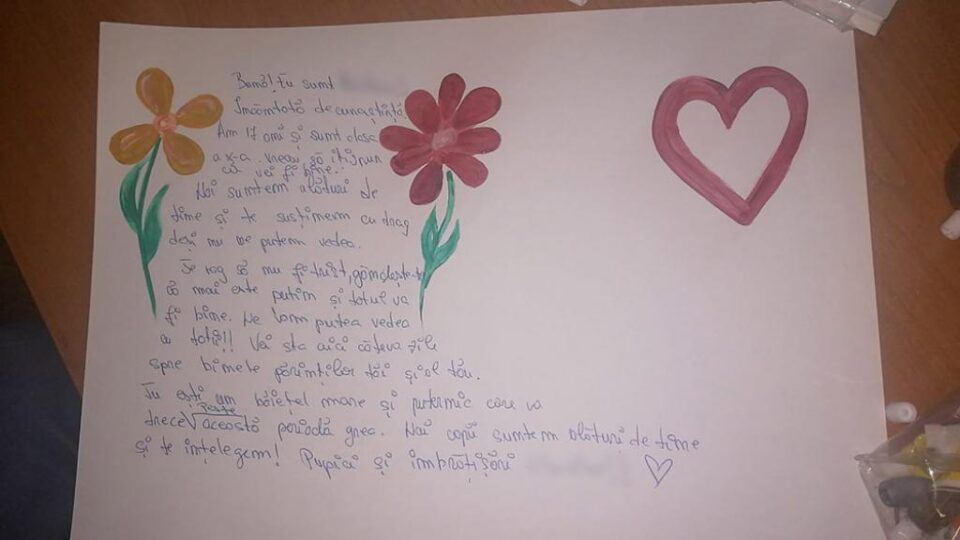 Bună! Eu sunt
Încântată de cunaștință,
Am 17 ani și sunt clasa
a x-a. vreau să îți spun
că vei fi bine.
Noi suntem alături de
tine și te susținem cu drag
deși nu ne putem vedea.
Te rog să nu fi trist, gândește-te
că mai este puțin și totul va
fi bine. Ne vom putea vedea
cu toții!! Vă sta aici câteva zile
spre binele părinților tăi și al tău.
Tu ești un băiețel mare și puternic care va
trece peste această perioadă grea. Noi copii suntem alături de tine
și te înțelegem! Pupici și îmbrățișări